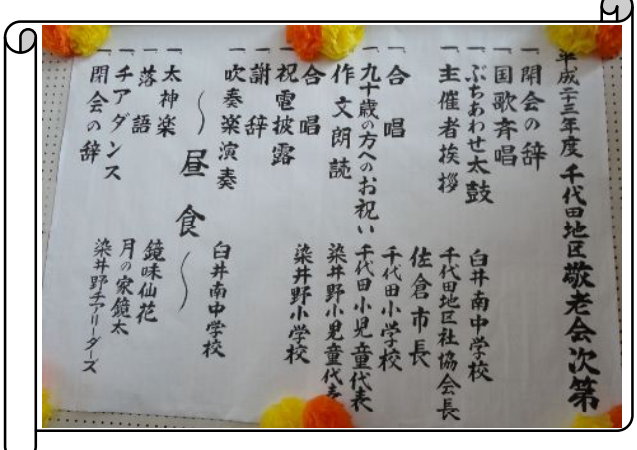 平成二十三年度 千代田地区敬老会次第
一 開会の辞
一 国歌斉唱
一 ぶちあわせ太鼓 臼井南中学校
一 主催者挨拶 千代田地区社協会長
佐倉市長
一 合唱 千代田小学校
一 九十歳の方へのお祝い 千代田小児童代表
一 作文朗読 染井野小児童代表
一 合唱 染井野小学校
一 祝電披露
一 謝辞
一 吹奏楽演奏 臼井南中学校
〜昼食〜
一 太神楽 鏡味仙花
一 落語 月の家鏡太
一 チアダンス 染井野チアリーダーズ
一 閉会の辞